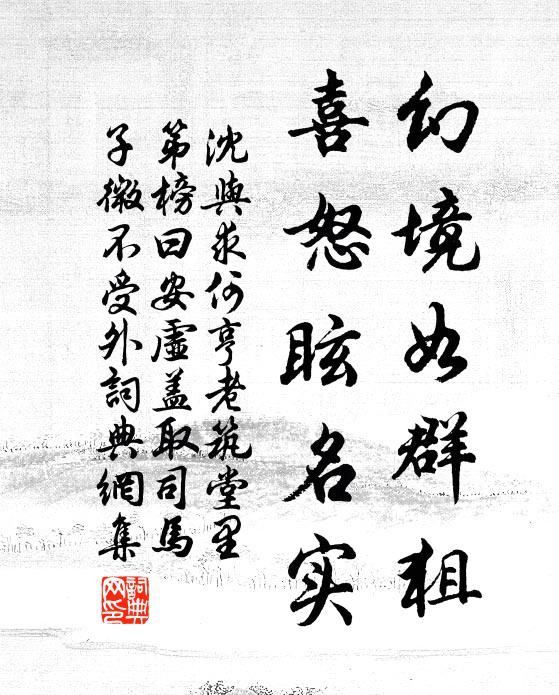 幻境如群狙
喜怒眩名实
沈与求何亨老筑堂里
第榜曰安虚盖取司马
子微不受外词典网集
詞典网印